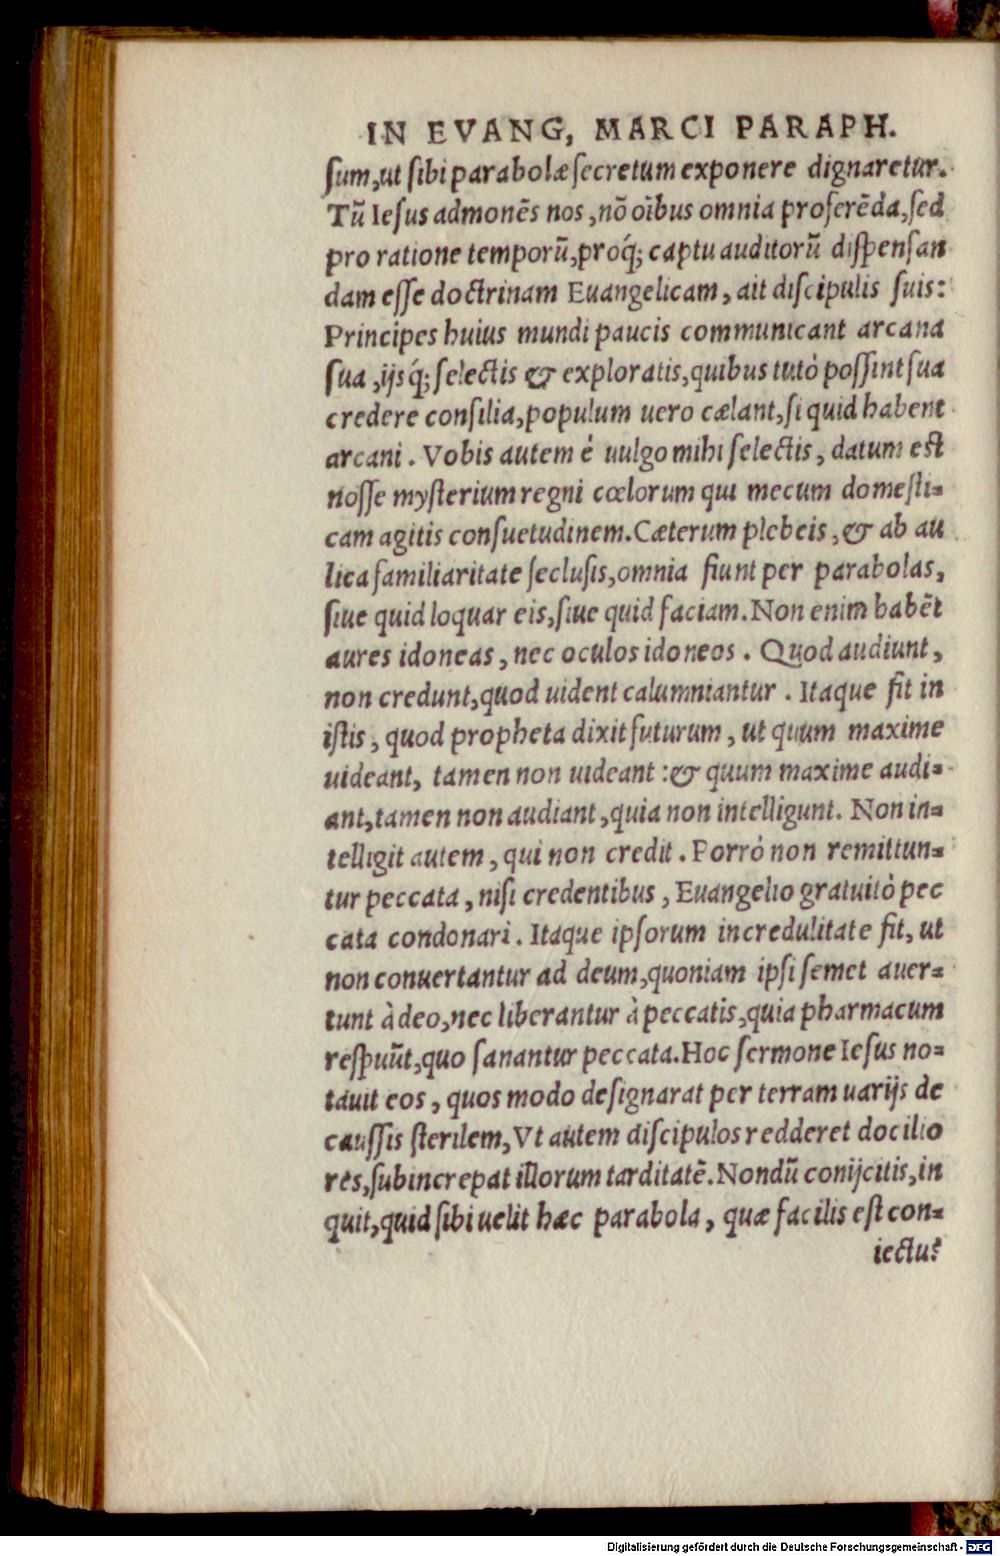 IN EVANG, MARCI PARAPH.
ſum,ut ſibi parabolæ ſecretum exponere dignaretur.
Tũ Ieſus admonẽs nos, nõ oĩbus omnia proferẽda, ſed
pro ratione temporũ, proq́; captu auditorũ diſpenſan
dam eſſe doctrinam Euangelicam, ait diſcipulis ſuis:
Principes huius mundi paucis communicant arcana
ſua, ijsq́; ſelectis & exploratis, quibus tutò poſſint ſua
credere conſilia, populum uero cælant, ſi quid habent
arcani. Vobis autem è uulgo mihi ſelectis, datum eſt
noſſe myſterium regni cœlorum qui mecum domeſti-
cam agitis conſuetudinem. Cæterum plebeis, & ab au
lica familiaritate ſecluſis, omnia fiunt per parabolas,
ſiue quid loquar eis, ſiue quid faciam. Non enim habẽt
aures idoneas, nec oculos idoneos. Quod audiunt,
non credunt, quod uident calumniantur. Itaque fit in
iſtis, quod propheta dixit futurum, ut quum maxime
uideant, tamen non uideant: & quum maxime audi-
ant, tamen non audiant, quia non intelligunt. Non in-
telligit autem, qui non credit. Porrò non remittun-
tur peccata, niſi credentibus, Euangelio gratuitò pec
cata condonari. Itaque ipſorum incredulitate fit, ut
non conuertantur ad deum, quoniam ipſi ſemet auer-
tunt à deo, nec liberantur à peccatis, quia pharmacum
reſpuũt, quo ſanantur peccata. Hoc ſermone Ieſus no-
tauit eos, quos modo deſignarat per terram uarijs de
cauſſis ſterilem, Vt autem diſcipulos redderet docilio
res, ſubincrepat illorum tarditatẽ. Nondũ conijcitis, in
quit, quid ſibi uelit hæc parabola, quæ facilis eſt con-
iectu?
Digitalisierung gefördert durch die Deutsche Forschungsgemeinschaft - DFG